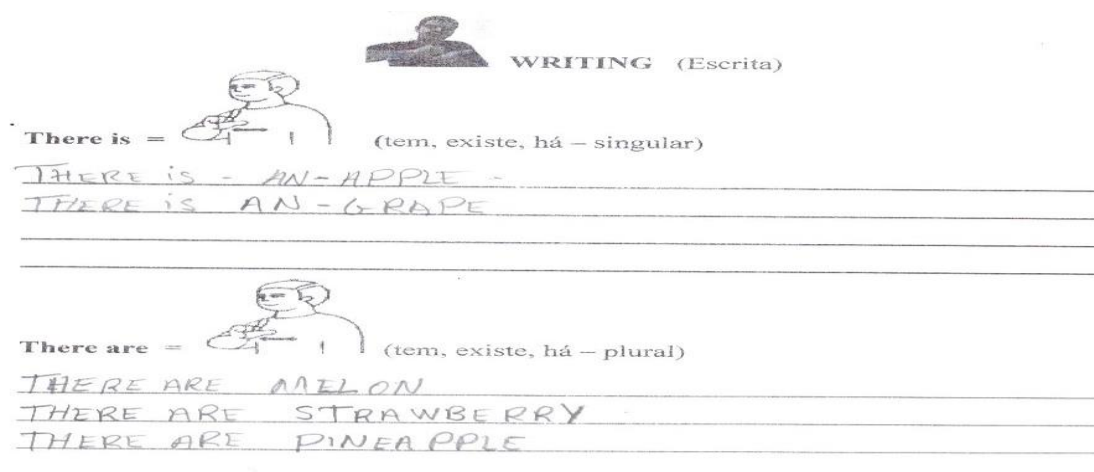 WRITING (Escrita)
There is = (tem, existe, há – singular)
THERE iS - AN - APPLE -
THERE iS AN - GRAPE
There are = (tem, existe, há – plural)
THERE ARE MELON
THERE ARE STRAWBERRY
THERE ARE PINEAPPLE